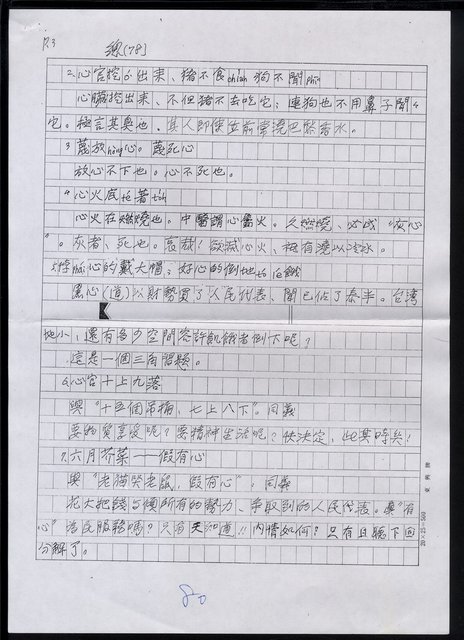 P.3 總(78)
2.心官挖出來、豬不食 狗不聞
心臟挖出來、不但豬不去吃它；連狗也不用鼻子聞
它。極言其臭也．其人即使生前常澆巴黎香水。
3 放心。死心
放心不下也。心不死也。
4 心火底著
心火在燃燒也。中醫謂心屬火。久燃燒、必成"灰心
"。灰者、死也。哀哉！欲滅心火、祇有澆以冷水。
5 心的戴大帽；好心的倒地餓
黑心(道)以財勢買了人民代表、聞已佔了泰半。台灣
地小；還有多少空間容許飢餓者倒下呢？
這是一個三角習題。
6.心官十上九落
與"十五個吊桶、七上八下"。同義
要物質享受呢？要精神生活呢？快決定，此其時矣！
7.六月芥菜——假有心
與"老貓哭老鼠、假有心"；同義
花大把錢與傾所有的勢力、爭取到的人民代表。真"有
心"為民服務嗎？只有天知道!!內情如何？只有且聽下回
分解了。
80
20×25=500